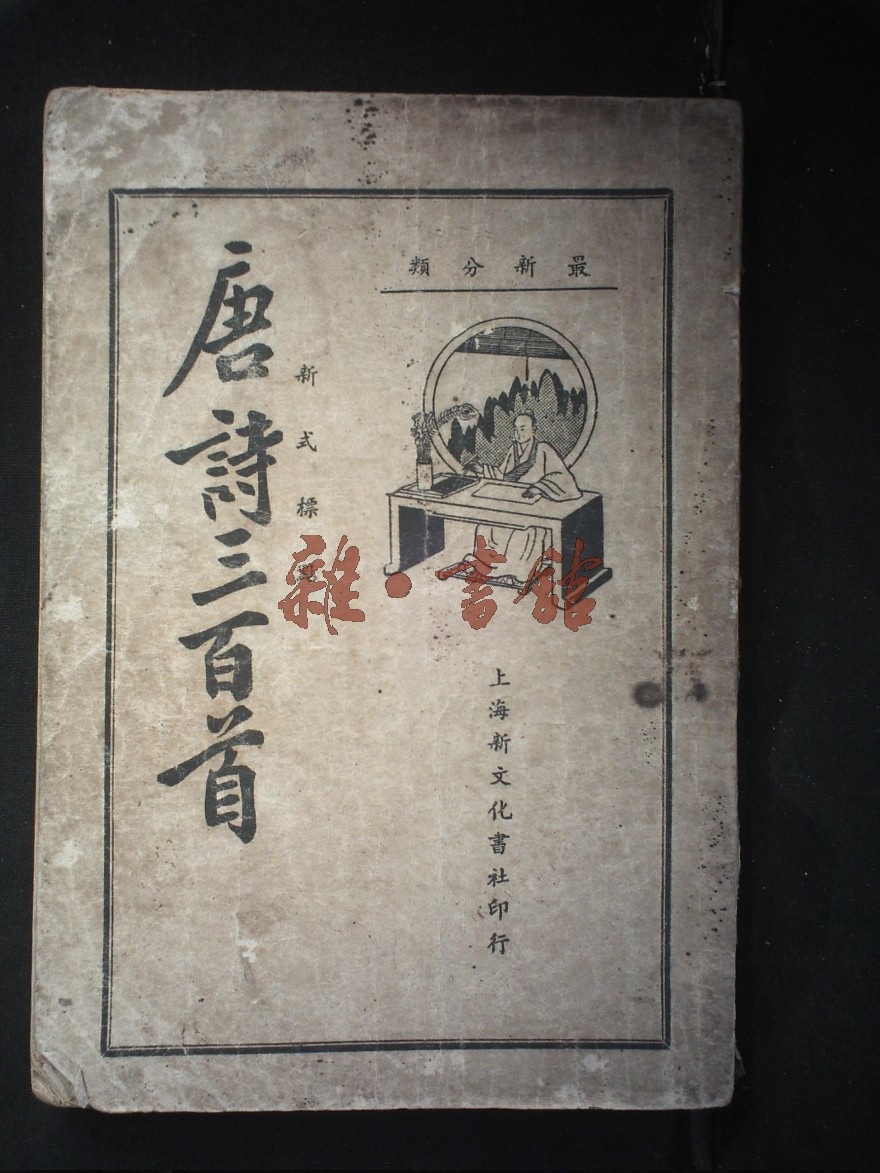 最新分類
唐詩三百首
新式標
上海新文化書社印行
雜·書館